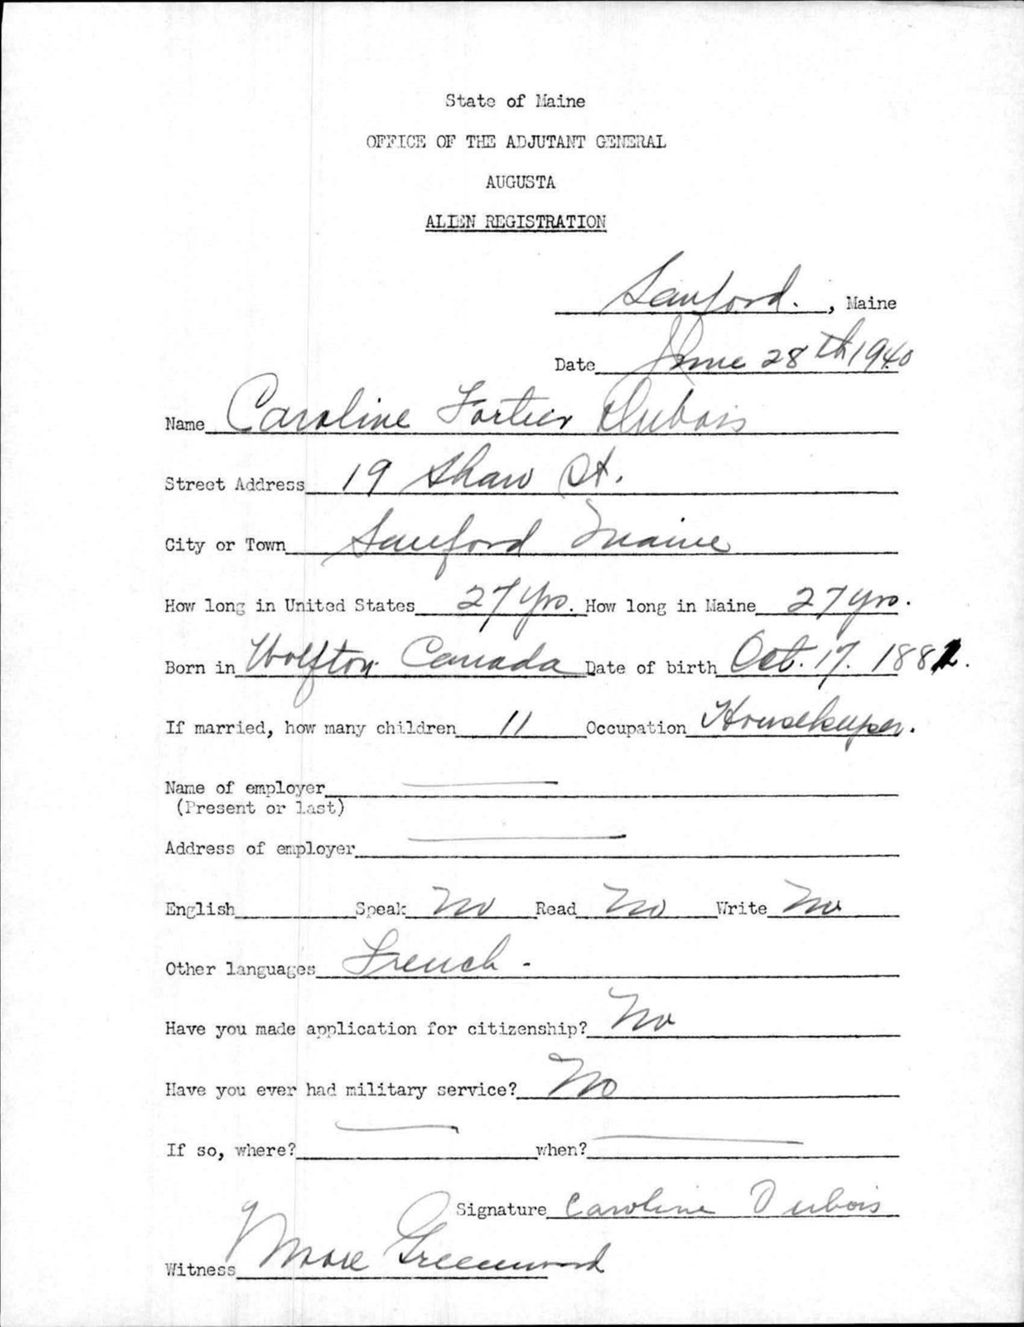 State of Maine
OFFICE OF THE ADJUTANT GENERAL
AUGUSTA
ALIEN REGISTRATION
Sanford. , Maine
Date June 28th 1940
Name Caroline Fortier Dubois
Street Address 19 Shaw St.
City or Town Sanford Maine
How long in United States 27 yrs. How long in Maine 27 yrs.
Born in Wolfton Canada Date of birth Oct. 17. 1882.
If married, how many children 11 Occupation Housekeeper.
Name of employer
(Present or last)
Address of employer
English Speak No Read No Write No
Other languages French -
Have you made application for citizenship? No
Have you ever had military service? No
If so, where? when?
Signature Caroline Dubois
Witness Greenwood